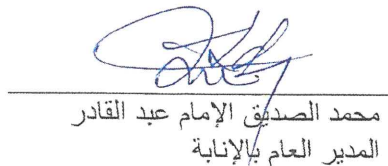 محمد الصديق الإمام عبد القادر
المدير العام بالإنابة